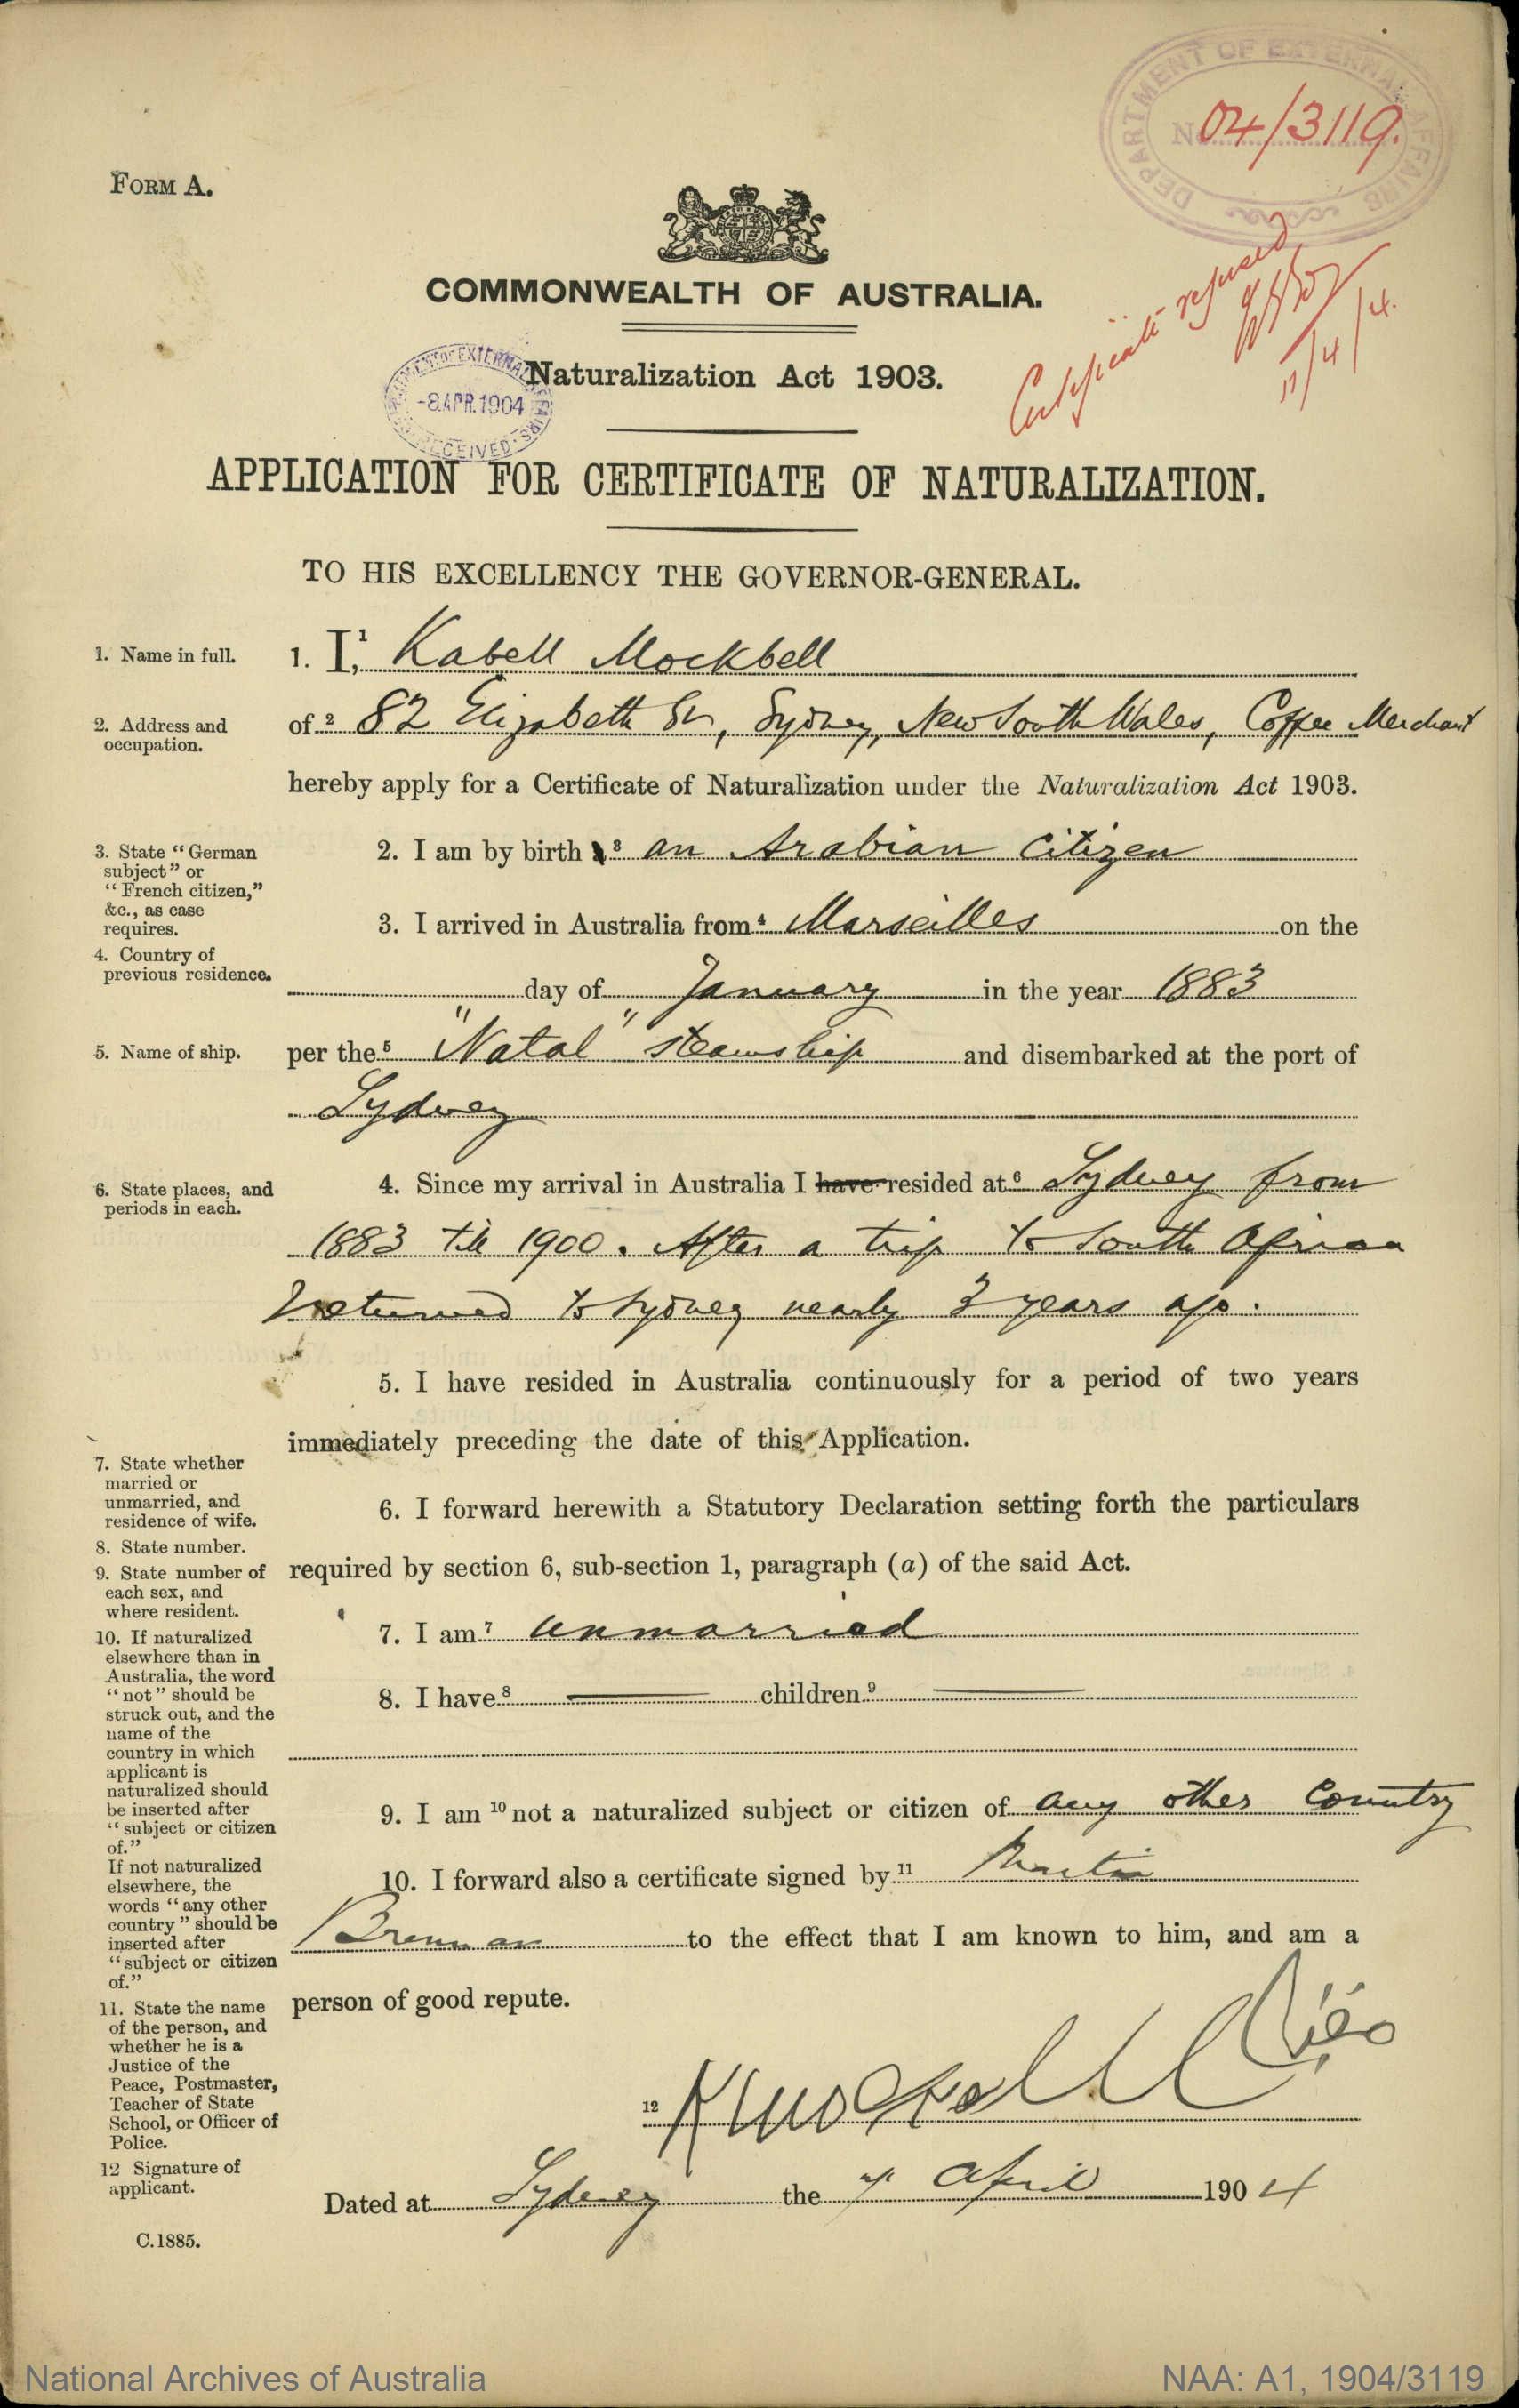 DEPARTMENT OF EXTERNAL AFFAIRS
No 04/3119.
FORM A.
COMMONWEALTH OF AUSTRALIA.
Certificate refused
11/4/4.
Naturalization Act 1903.
DEPARTMENT OF EXTERNAL AFFAIRS
-8.APR.1904
RECEIVED
APPLICATION FOR CERTIFICATE OF NATURALIZATION.
TO HIS EXCELLENCY THE GOVERNOR-GENERAL.
1. Name in full.
1. I,¹ Kabell Mockbell
2. Address and
occupation.
of ² 82 Elizabeth St, Sydney, New South Wales, Coffee Merchant
hereby apply for a Certificate of Naturalization under the Naturalization Act 1903.
3. State “German
subject” or
“French citizen,”
&c., as case
requires.
2. I am by birth ³ an Arabian Citizen
4. Country of
previous residence.
3. I arrived in Australia from ⁴ Marseilles on the
day of January in the year 1883
5. Name of ship.
per the ⁵ "Natal" steamship and disembarked at the port of
Sydney
6. State places, and
periods in each.
4. Since my arrival in Australia I have resided at ⁶ Sydney from
1883 till 1900. After a trip to South Africa
returned to Sydney nearly years ago.
5. I have resided in Australia continuously for a period of two years
immediately preceding the date of this Application.
6. I forward herewith a Statutory Declaration setting forth the particulars
required by section 6, sub-section 1, paragraph (a) of the said Act.
7. State whether
married or
unmarried, and
residence of wife.
8. State number.
9. State number of
each sex, and
where resident.
7. I am ⁷ unmarried
8. I have ⁸ — children ⁹ —
10. If naturalized
elsewhere than in
Australia, the word
“not” should be
struck out, and the
name of the
country in which
applicant is
naturalized should
be inserted after
“subject or citizen
of.”
If not naturalized
elsewhere, the
words “any other
country” should be
inserted after
“subject or citizen
of.”
9. I am ¹⁰ not a naturalized subject or citizen of any other Country
10. I forward also a certificate signed by ¹¹ Martin
Brennan to the effect that I am known to him, and am a
person of good repute.
11. State the name
of the person, and
whether he is a
Justice of the
Peace, Postmaster,
Teacher of State
School, or Officer of
Police.
12 Signature of
applicant.
12 KMockbell
Dated at Sydney the 7 April 1904
C.1885.
National Archives of Australia
NAA: A1, 1904/3119